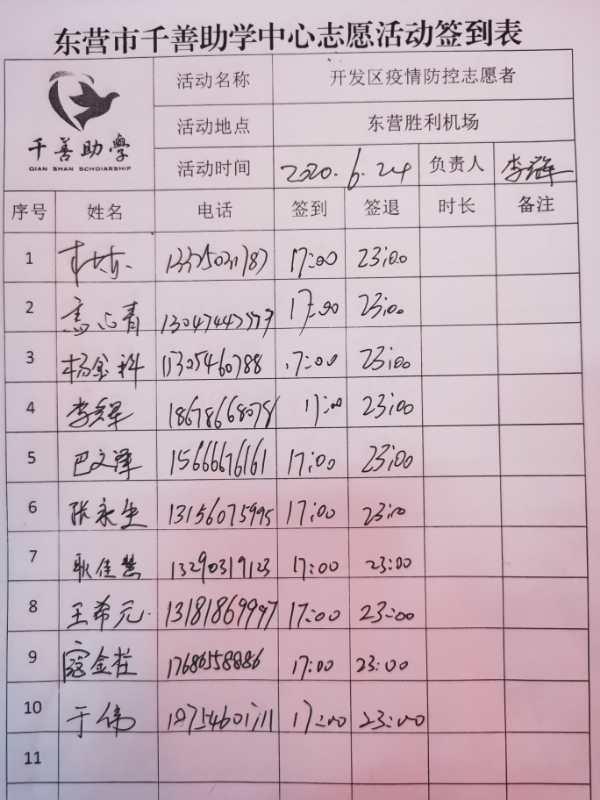 东营市千善助学中心志愿活动签到表
千善助學
QIAN SHAN SCHOLARSHIP
活动名称 开发区疫情防控志愿者
活动地点 东营胜利机场
活动时间 2020.6.24 负责人 李辉
序号 姓名 电话 签到 签退 时长 备注
1 17:00 23:00
2 17:00 23:00
3 杨金科 17:00 23:00
4 17:00 23:00
5 巴文泽 15666676161 17:00 23:00
6 张永生 13156075995 17:00 23:00
7 耿佳慧 13290319123 17:00 23:00
8 王希元 13181869997 17:00 23:00
9 17686558886 17:00 23:00
10 于伟 17:00 23:00
11